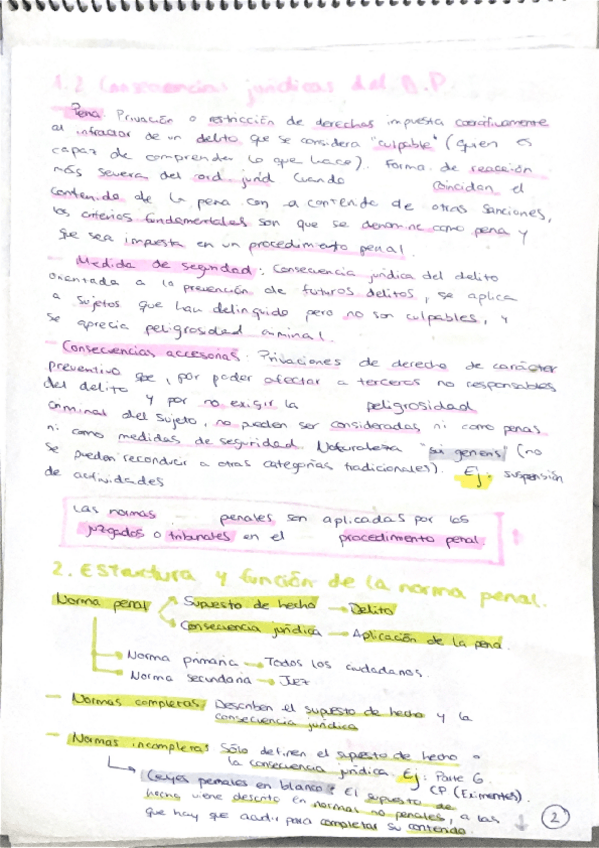 1.2 Consecuencias jurídicas del D.P.
- Pena. Privación o restricción de derechos impuesta coercitivamente
al infractor de un delito que se considera "culpable" (quien es
capaz de comprender lo que hace). Forma de reacción
más severa del ord. juríd. Cuando coincidan el
contenido de la pena con el contenido de otras sanciones,
los criterios fundamentales son que se denomine como pena y
que sea impuesta en un procedimiento penal.
- Medida de seguridad: Consecuencia jurídica del delito
orientada a la prevención de futuros delitos, se aplica
a sujetos que han delinquido pero no son culpables, y
se aprecia peligrosidad criminal.
- Consecuencias accesorias. Privaciones de derecho de carácter
preventivo que, por poder afectar a terceros no responsables
del delito y por no exigir la peligrosidad
criminal del sujeto, no pueden ser consideradas ni como penas
ni como medidas de seguridad. Naturaleza "sui generis" (no
se pueden reconducir a otras categorías tradicionales). Ej: suspensión
de actividades
Las normas penales son aplicadas por los
juzgados o tribunales en el procedimiento penal.
2. Estructura y función de la norma penal.
Norma penal Supuesto de hecho → Delito
Consecuencia jurídica → Aplicación de la pena.
Norma primaria → Todos los ciudadanos.
Norma secundaria → Juez
- Normas completas. Describen el supuesto de hecho y la
consecuencia jurídica
- Normas incompletas. Sólo definen el supuesto de hecho o
la consecuencia jurídica. Ej: Parte G.
CP (Eximentes).
Leyes penales en blanco: El supuesto de
hecho viene descrito en normas no penales, a las
que hay que acudir para completar su contenido. ↓ 2